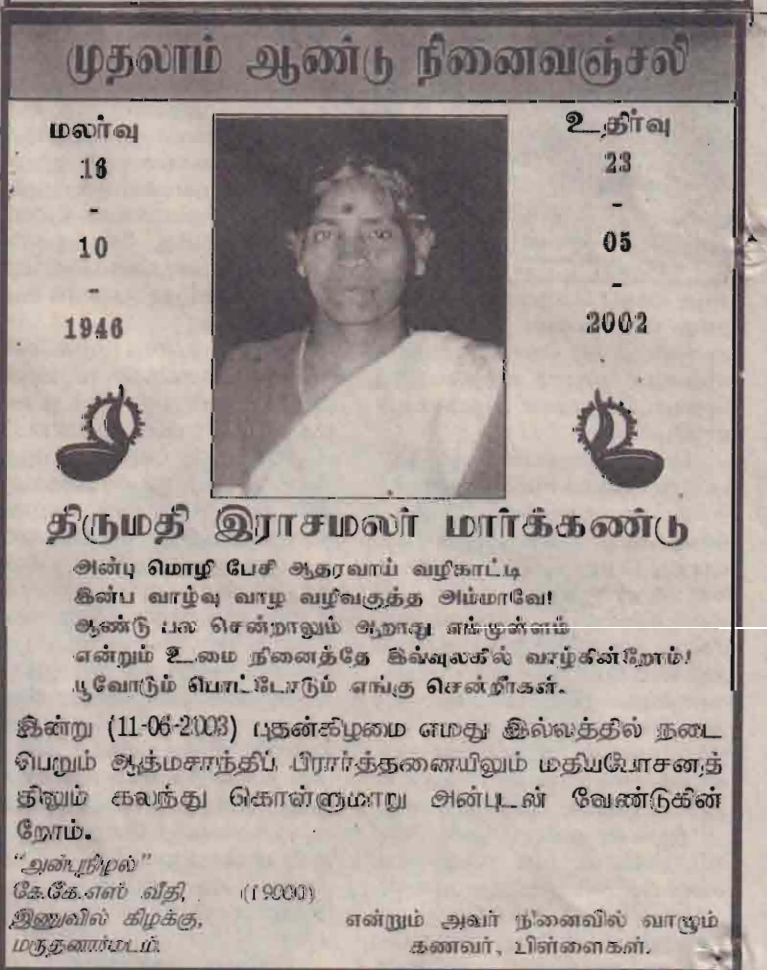 முதலாம் ஆண்டு நினைவஞ்சலி
மலர்வு
16
-
10
-
1946
உதிர்வு
23
-
05
-
2002
திருமதி இராசமலர் மார்க்கண்டு
அன்பு மொழி பேசி ஆதரவாய் வழிகாட்டி
இன்ப வாழ்வு வாழ வழிவகுத்த அம்மாவே!
ஆண்டு பல சென்றாலும் ஆறாது எம்முள்ளம்
என்றும் உமை நினைத்தே இவ்வுலகில் வாழ்கின்றோம்!
பூவோடும் பொட்டோடும் எங்கு சென்றீர்கள்.
இன்று (11-06-2003) புதன்கிழமை எமது இல்லத்தில் நடை
பெறும் ஆத்மசாந்திப் பிரார்த்தனையிலும் மதியபோசனத்
திலும் கலந்து கொள்ளுமாறு அன்புடன் வேண்டுகின்
றோம்.
"அன்புநிழல்"
கே.கே.எஸ் வீதி, (19000)
இணுவில் கிழக்கு,
மருதனார்மடம்.
என்றும் அவர் நினைவில் வாழும்
கணவர், பிள்ளைகள்.